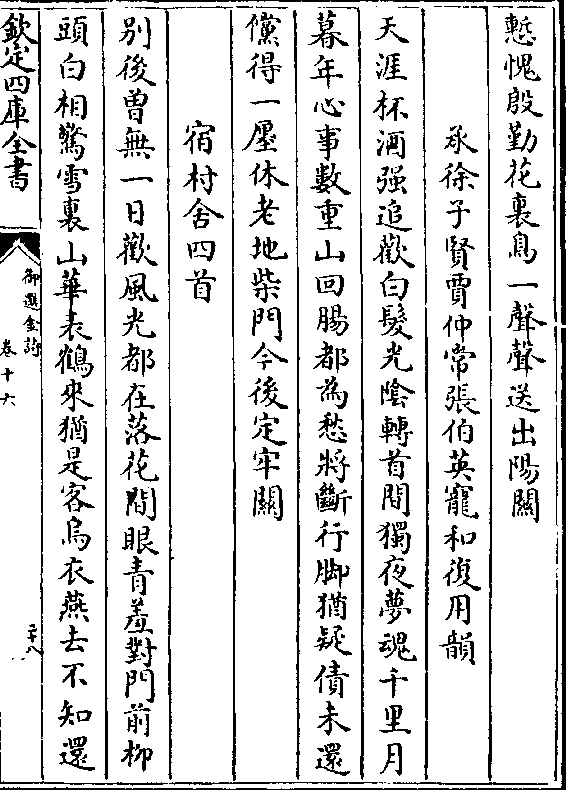 慙愧殷勤花裏鳥一聲聲送出陽關
承徐子賢賈仲常張伯英寵和復用韻
天涯杯酒强追歡白髮光陰轉首間獨夜夢魂千里月
暮年心事數重山回腸都為愁將斷行脚猶疑債未還
儻得一廛休老地柴門今後定牢關
宿村舍四首
别後曽無一日歡風光都在落花間眼青羞對門前柳
頭白相驚雪裏山華表鶴來猶是客烏衣燕去不知還
欽定四庫全書
御選金詩
卷十六
二十八